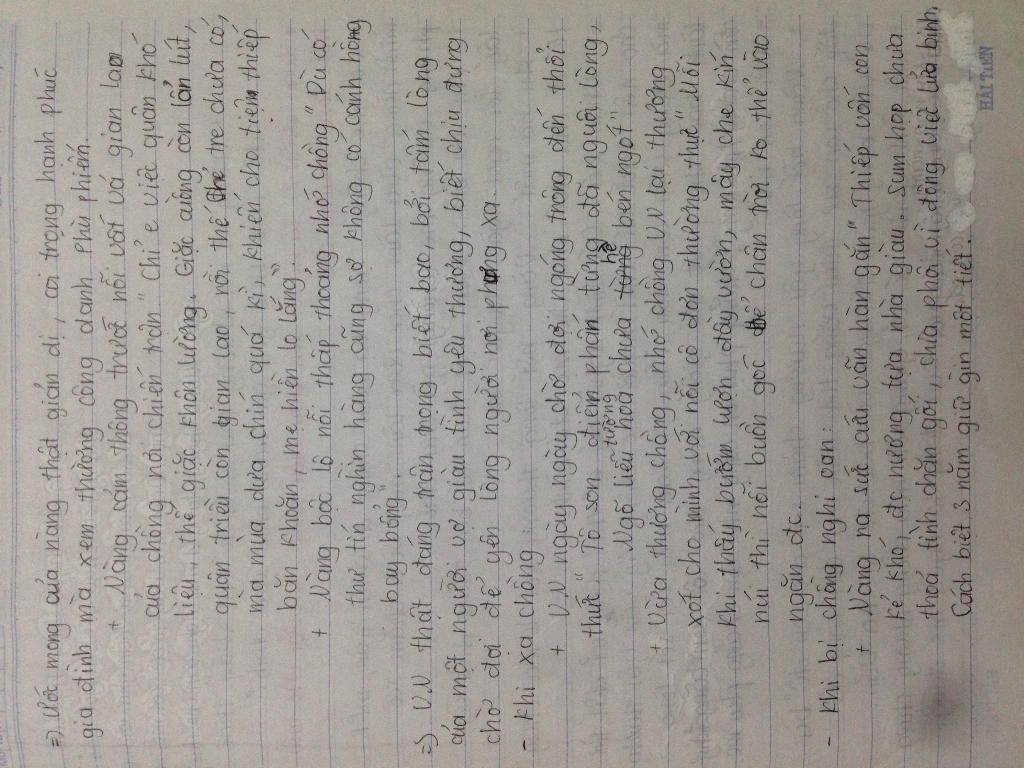 => Ước mong của nàng thật giản dị, coi trọng hạnh phúc
gia đình mà xem thường công danh phù phiếm.
+ Nàng cảm thông trước nỗi vất vả gian lao
của chồng nơi chiến trận "Chỉ e việc quân khó
liệu, thế giặc khôn lường. Giặc cuồng còn lẩn lút,
quân triều còn gian lao, rồi thế chẻ tre chưa có,
mà mùa dưa chín quá kì, khiến cho tiện thiếp
băn khoăn, mẹ hiền lo lắng"
+ Nàng bộc lộ nỗi thấp thoảng nhớ chồng "Dù có
thư tín nghìn hàng cũng sợ không có cánh hồng
bay bổng".
=> V.N thật đáng trân trọng biết bao, bởi tấm lòng
của một người vợ giàu tình yêu thương, biết chịu đựng
chờ đợi để yên lòng người nơi phương xa.
- Khi xa chồng:
+ V.N ngày ngày chờ đợi ngóng trông đến thổi
thức "Tô son điểm phấn từng đã nguôi lòng,
Ngõ liễu tường hoa chưa hề bén ngót"
+ Vừa thương chồng, nhớ chồng V.N lại thương
xót cho mình với nỗi cô đơn thương thực "Mỗi
khi thấy bướm lượn đầy vườn, mây che kín
núi thì nỗi buồn góc bể chân trời ko thể vào
ngăn đc.
- Khi bị chồng nghi oan:
+ Nàng ra sức cứu vãn hàn gắn "Thiếp vốn con
kẻ khó, đc nương tựa nhà giàu. Sum họp chưa
thoả tình chăn gối, chia phôi vì động việc lửa binh,
Cách biệt 3 năm giữ gìn một tiết.
HẢI TIẾN